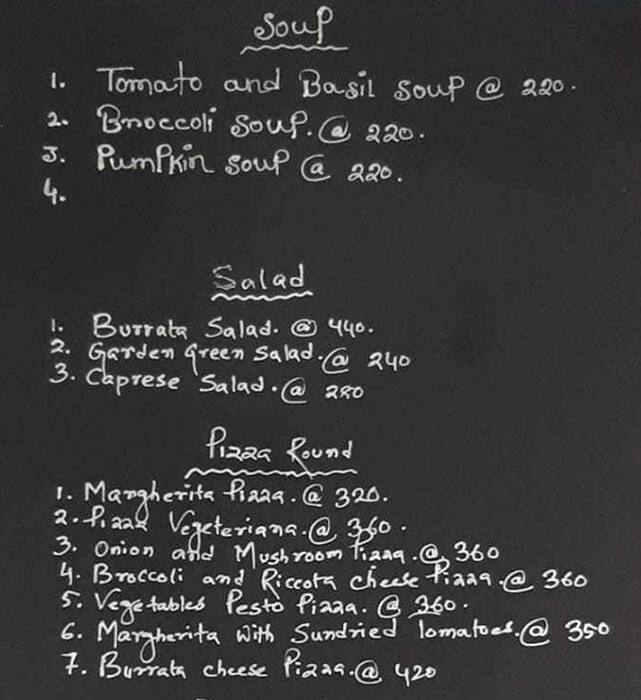 Soup
1. Tomato and Basil soup @ 220.
2. Broccoli soup. @ 220.
3. Pumpkin soup @ 220.
4.
Salad
1. Burrata Salad. @ 440.
2. Garden Green Salad. @ 240
3. Caprese Salad. @ 280
Pizza Round
1. Margherita Pizza. @ 320.
2. Pizza Vegeteriana. @ 360.
3. Onion and Mushroom Pizza. @ 360
4. Broccoli and Riccota cheese Pizza. @ 360
5. Vegetables Pesto Pizza. @ 360.
6. Margherita with Sundried Tomatoes. @ 350
7. Burrata cheese Pizza. @ 420